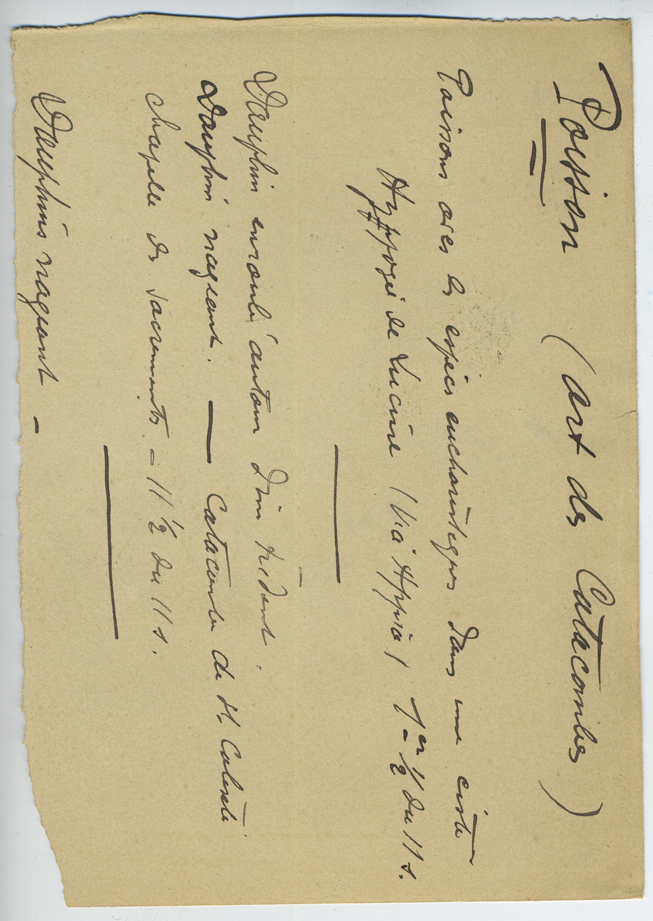 Poisson (art des Catacombes)
Poissons avec les espèces eucharistiques dans une ciste
Hyppogée de Lucine (Via Appia) 1er ½ du II s.
Dauphin enroulé autour d'un trident.
Dauphin nageant. — Catacombe de St Calixte
Chapelle des sacrements - II ½ du II s.
Dauphins nageant -